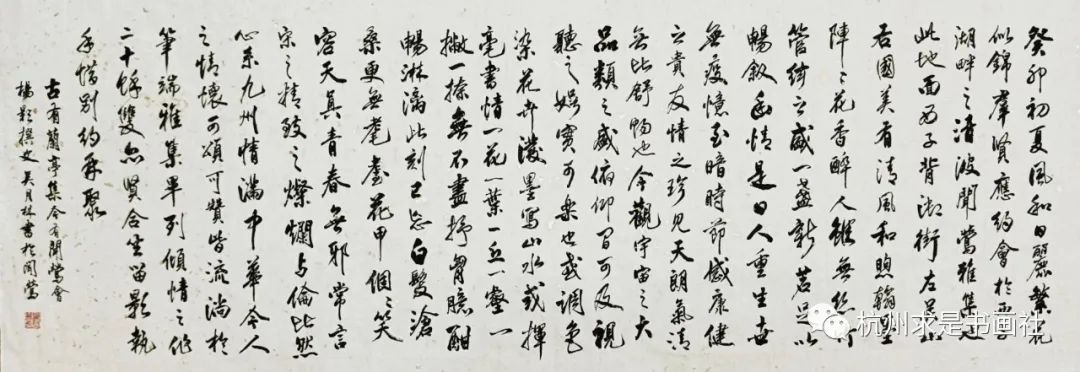 癸卯初夏風和日麗繁花
似錦羣賢應約會於西子
湖畔之清波聞鶯雅集
此地面西子背御街左呈
右國美看清風和煦翰墨
陣々花香醉人雖無絲竹
管絃之盛一盞新茗足以
暢叙幽情是日人重生世
無疫憶至暗時節感康健
之貴友情之珍見天朗氣清
無比舒暢也今觀宇宙之大
品類之盛俯仰間可及視
聽之娛實可樂也或調色
染花卉潑墨寫山水或揮
毫書情一花一葉一丘一壑一
撇一捺無不盡抒胷臆酣
暢淋漓此刻已忘白髮滄
桑更無耄耋花甲個々笑
容天真青春無邪常言
宗之精致之燦爛與倫比然
心系九州情滿中華令人
之情懷可頌可贊皆流淌於
筆端雅集畢列傾情之作
二十餘雙亦賢合坐留影執
手惜别約再聚
古有蘭亭集今有聞鶯會
楊影撰文吴月林書於聞鶯
杭州求是书画社